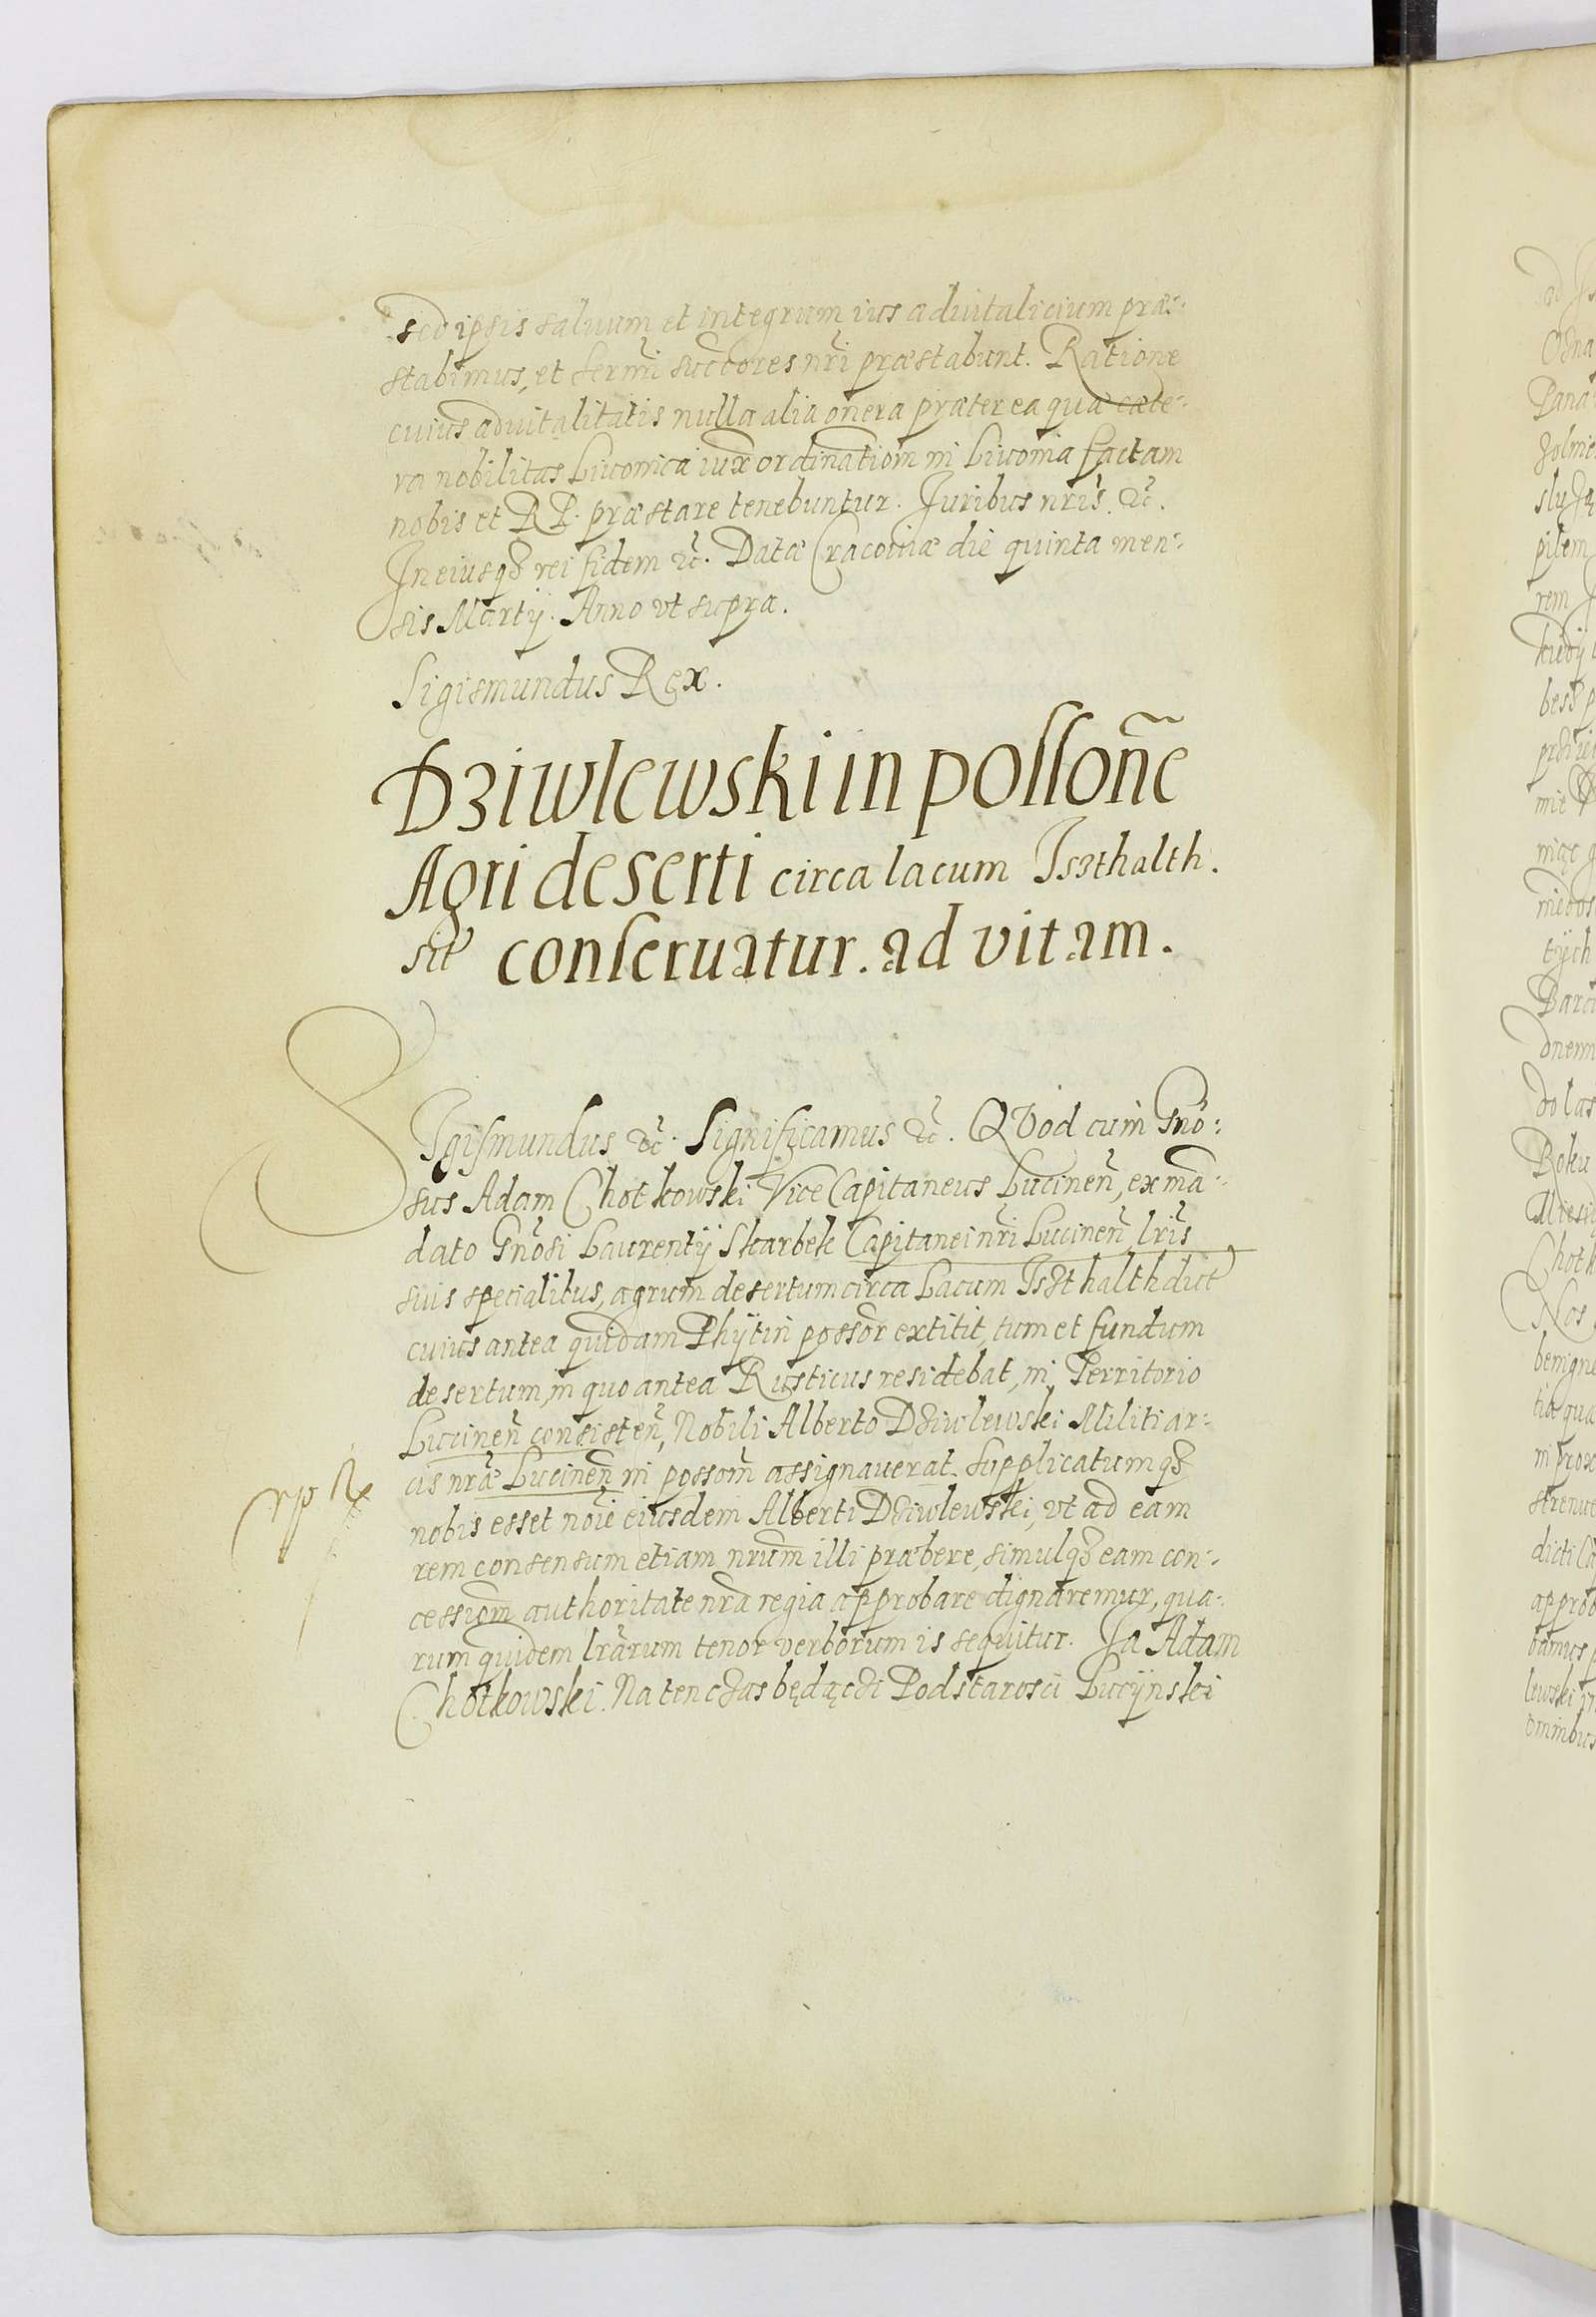 sed ipsis saluum et integrum ius aduitalicium præ-
stabimus, et Sermi succores nri præstabunt. Ratione
cuius aduitalitatis nulla alia onera præter ea quæ cæte-
ra nobilitas Liuonica iux ordinatiom in Liuonia factam
nobis et RP. præstare tenebuntur. Juribus nris. &c.
In eiusq3 rei fidem &c. Datæ Cracoviæ die quinta men-
sis Martij. Anno vt supra.
Sigismundus Rex.
Dziwlewski in possone
Agri deserti circa lacum Iszthalth.
sit conseruatur. ad vitam.
SIgismundus &c. Significamus &c. QVod cum Gno-
sus Adam Chotkowski Vice Capitaneus Lucinen, ex ma-
dato Gnosi Laurentij Skarbek Capitanei nri Lucinen, lris
suis specialibus, agrum desertum circa Lacum Iszthalth dict
cuius antea quidam Phÿtin possor extitit, tum et fundum
desertum, in quo antea Rusticus residebat, in Territorio
Lucinen consisten, Nobili Alberto Dziwlewski Militi ar-
cis nræ Lucinen in possom assignauerat. Supplicatumq3
nobis esset noie eiusdem Alberti Dziwlewski, vt ad eam
rem consensum etiam nrum illi præbere, simulq3 eam con-
cessiom authoritate nra regia approbare dignaremur, qua-
rum quidem lrarum tenor verborum is sequitur. Ja Adam
Chotkowski. Na ten czas będączi Podstarosci Lucÿnski